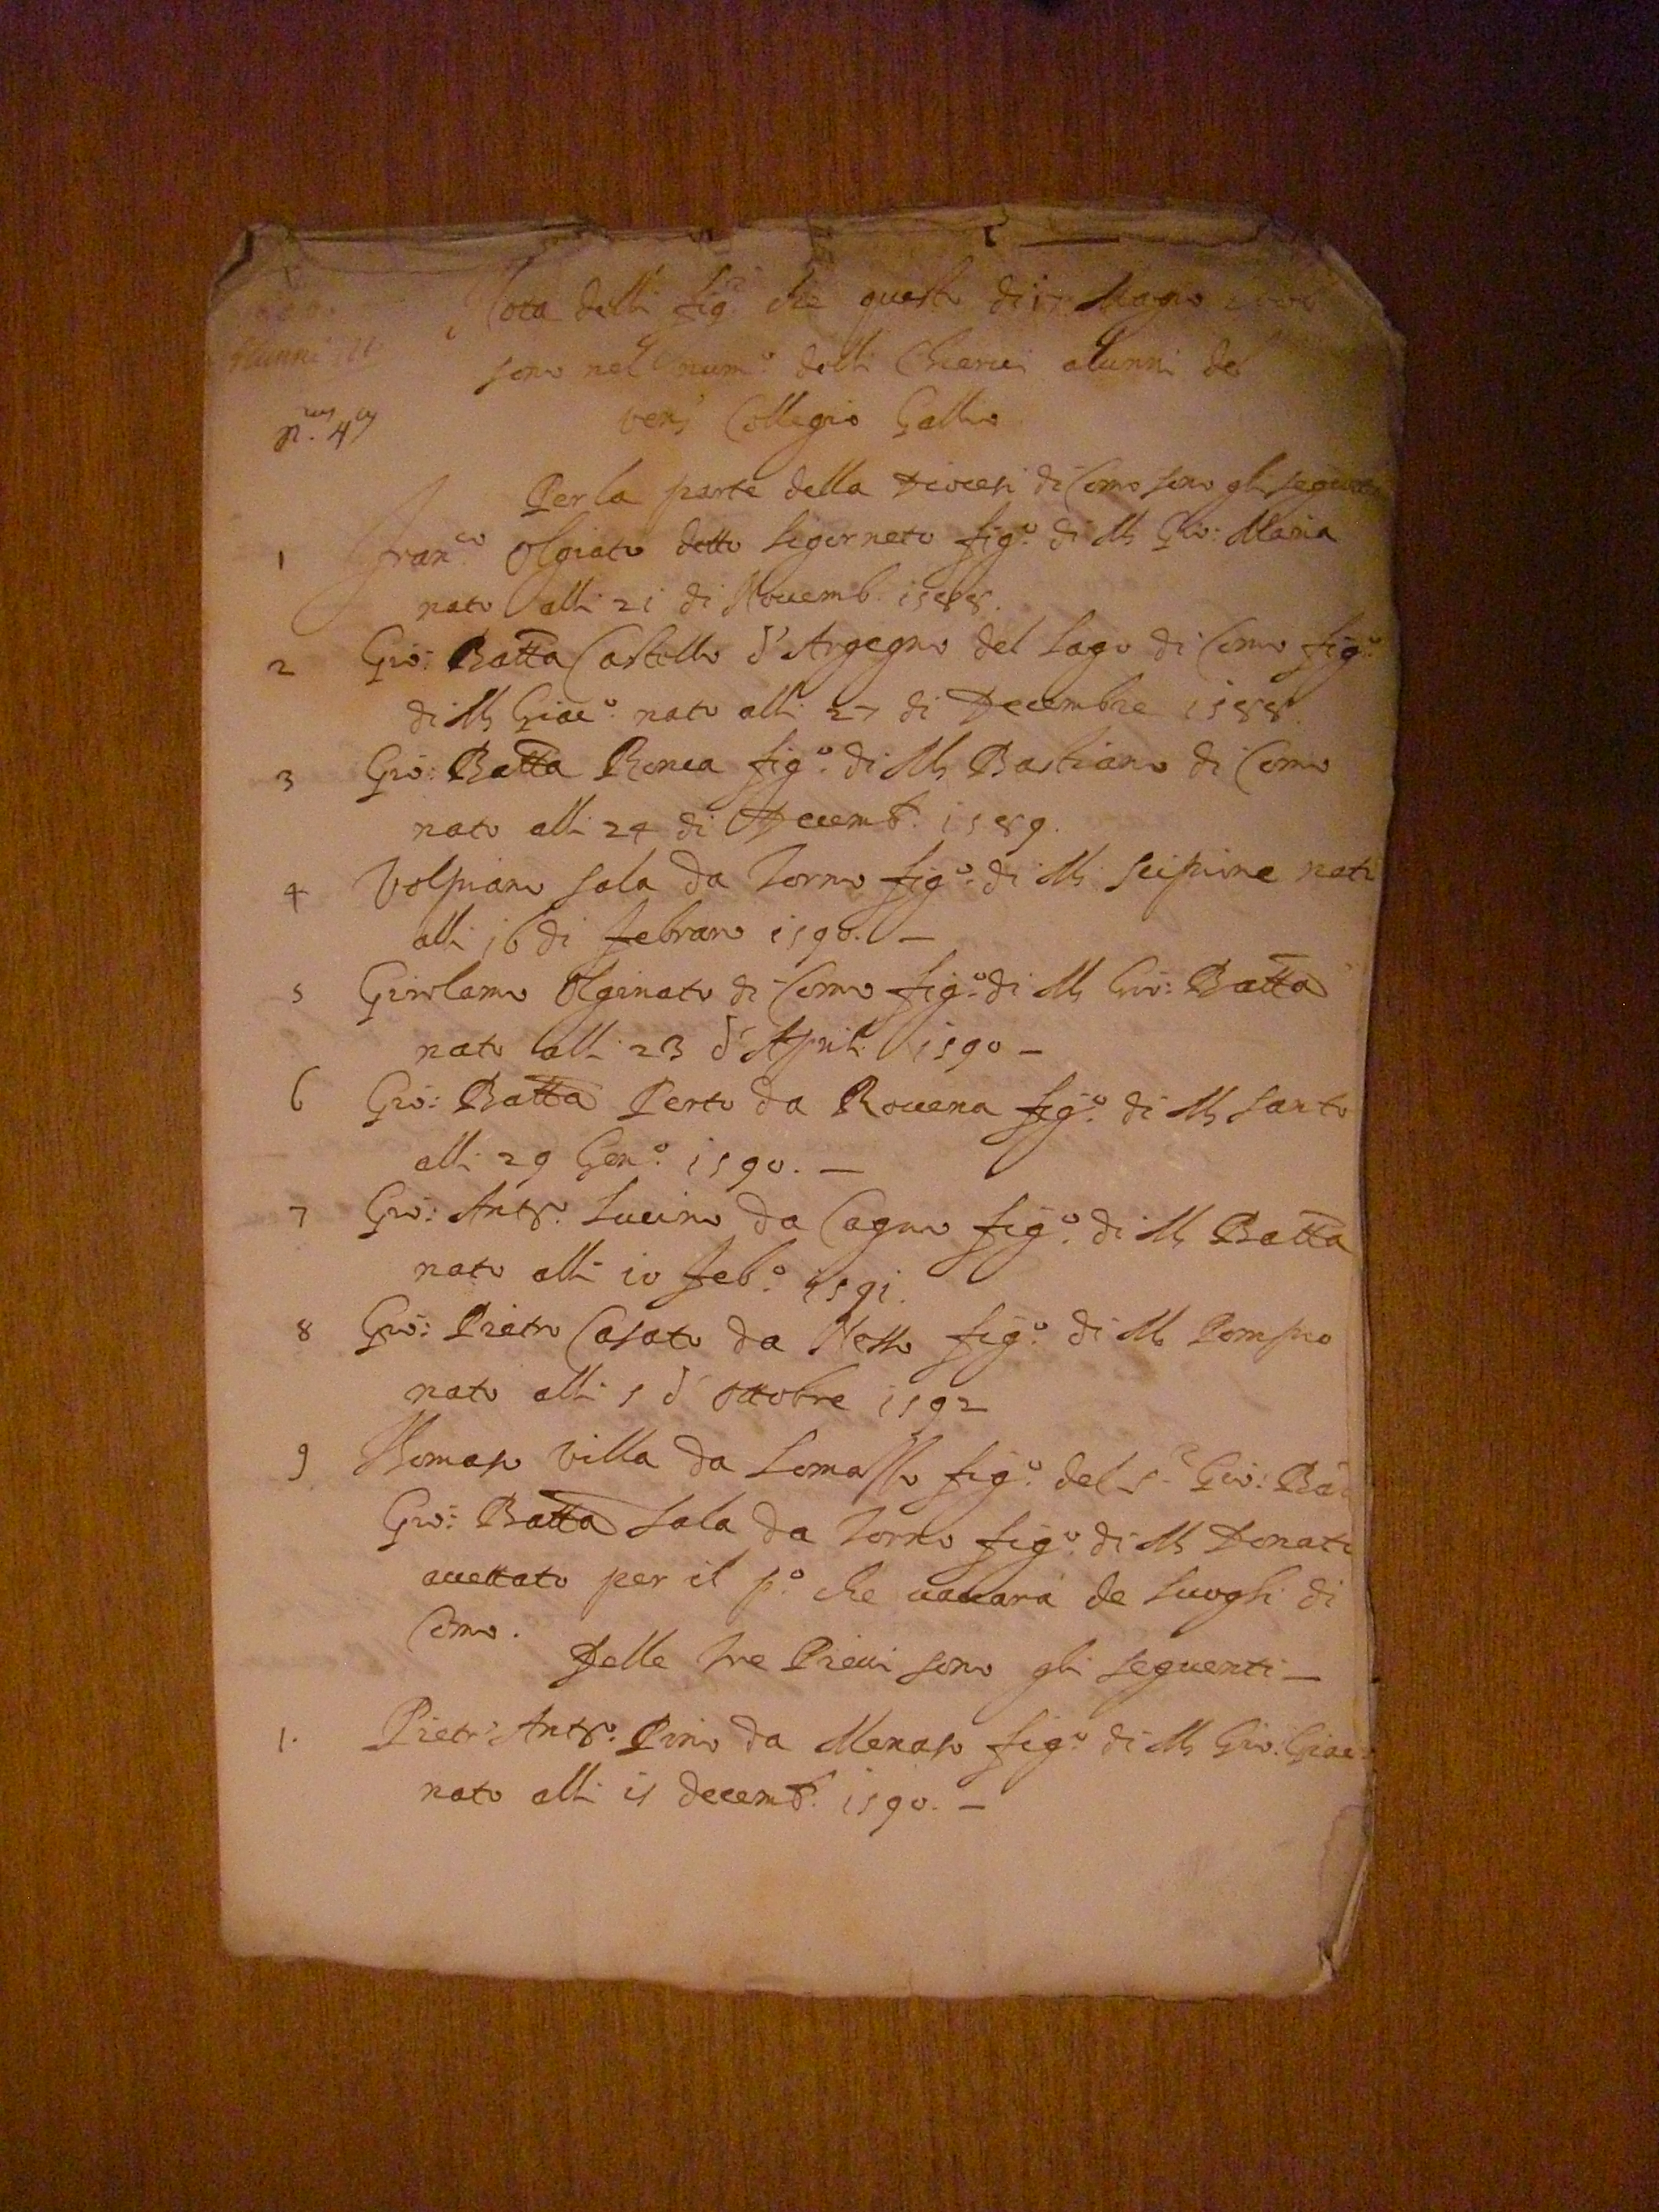 Nota delli fig.ri che questo di 17 Magio
sono nel num.o delli Chierici alunni del
ven.do Collegio Gallio
n.o 4
Per la parte della Diocesi di Como sono gli seguenti
1 Fran.co Olgiato detto Legorneto fig.o di M. Gio: Maria
nato alli 21 di Novemb. 1588.
2 Gio: Batta Castello d'Argegno del Lago di Como fig.o
di M. Giac.o nato alli 27 di Decembre 1588.
3 Gio: Batta Ronca fig.o di M. Bastiano di Como
nato alli 24 di Decemb. 1589.
4 Volpiano Sala da Torno fig.o di M. Scipione nato
alli 16 di febraro 1590. —
5 Girolamo Olginato di Como fig.o di M. Gio: Batta
nato alli 23 d'Aprile 1590 —
6 Gio: Batta Perto da Rovena fig.o di M. Santo
alli 29 Gen.o 1590. —
7 Gio: Ant.o Lucino da Cagno fig.o di M. Batta
nato alli 10 feb.o 1591.
8 Gio: Pietro Casato da Nesso fig.o di M. Pompeo
nato alli 5 d'ottobre 1592
9 Tomaso Villa da Lomasso fig.o del S.r Gio: Ba
Gio: Batta Sala da Torno fig.o di M. Donato
accettato per il p.o che vacará de luoghi di
Como.
Delle tre Pievi sono gli seguenti —
1. Pietr' Ant.o Pino da Menaso fig.o di M. Gio. Giac.o
nato alli 15 decemb. 1590. —